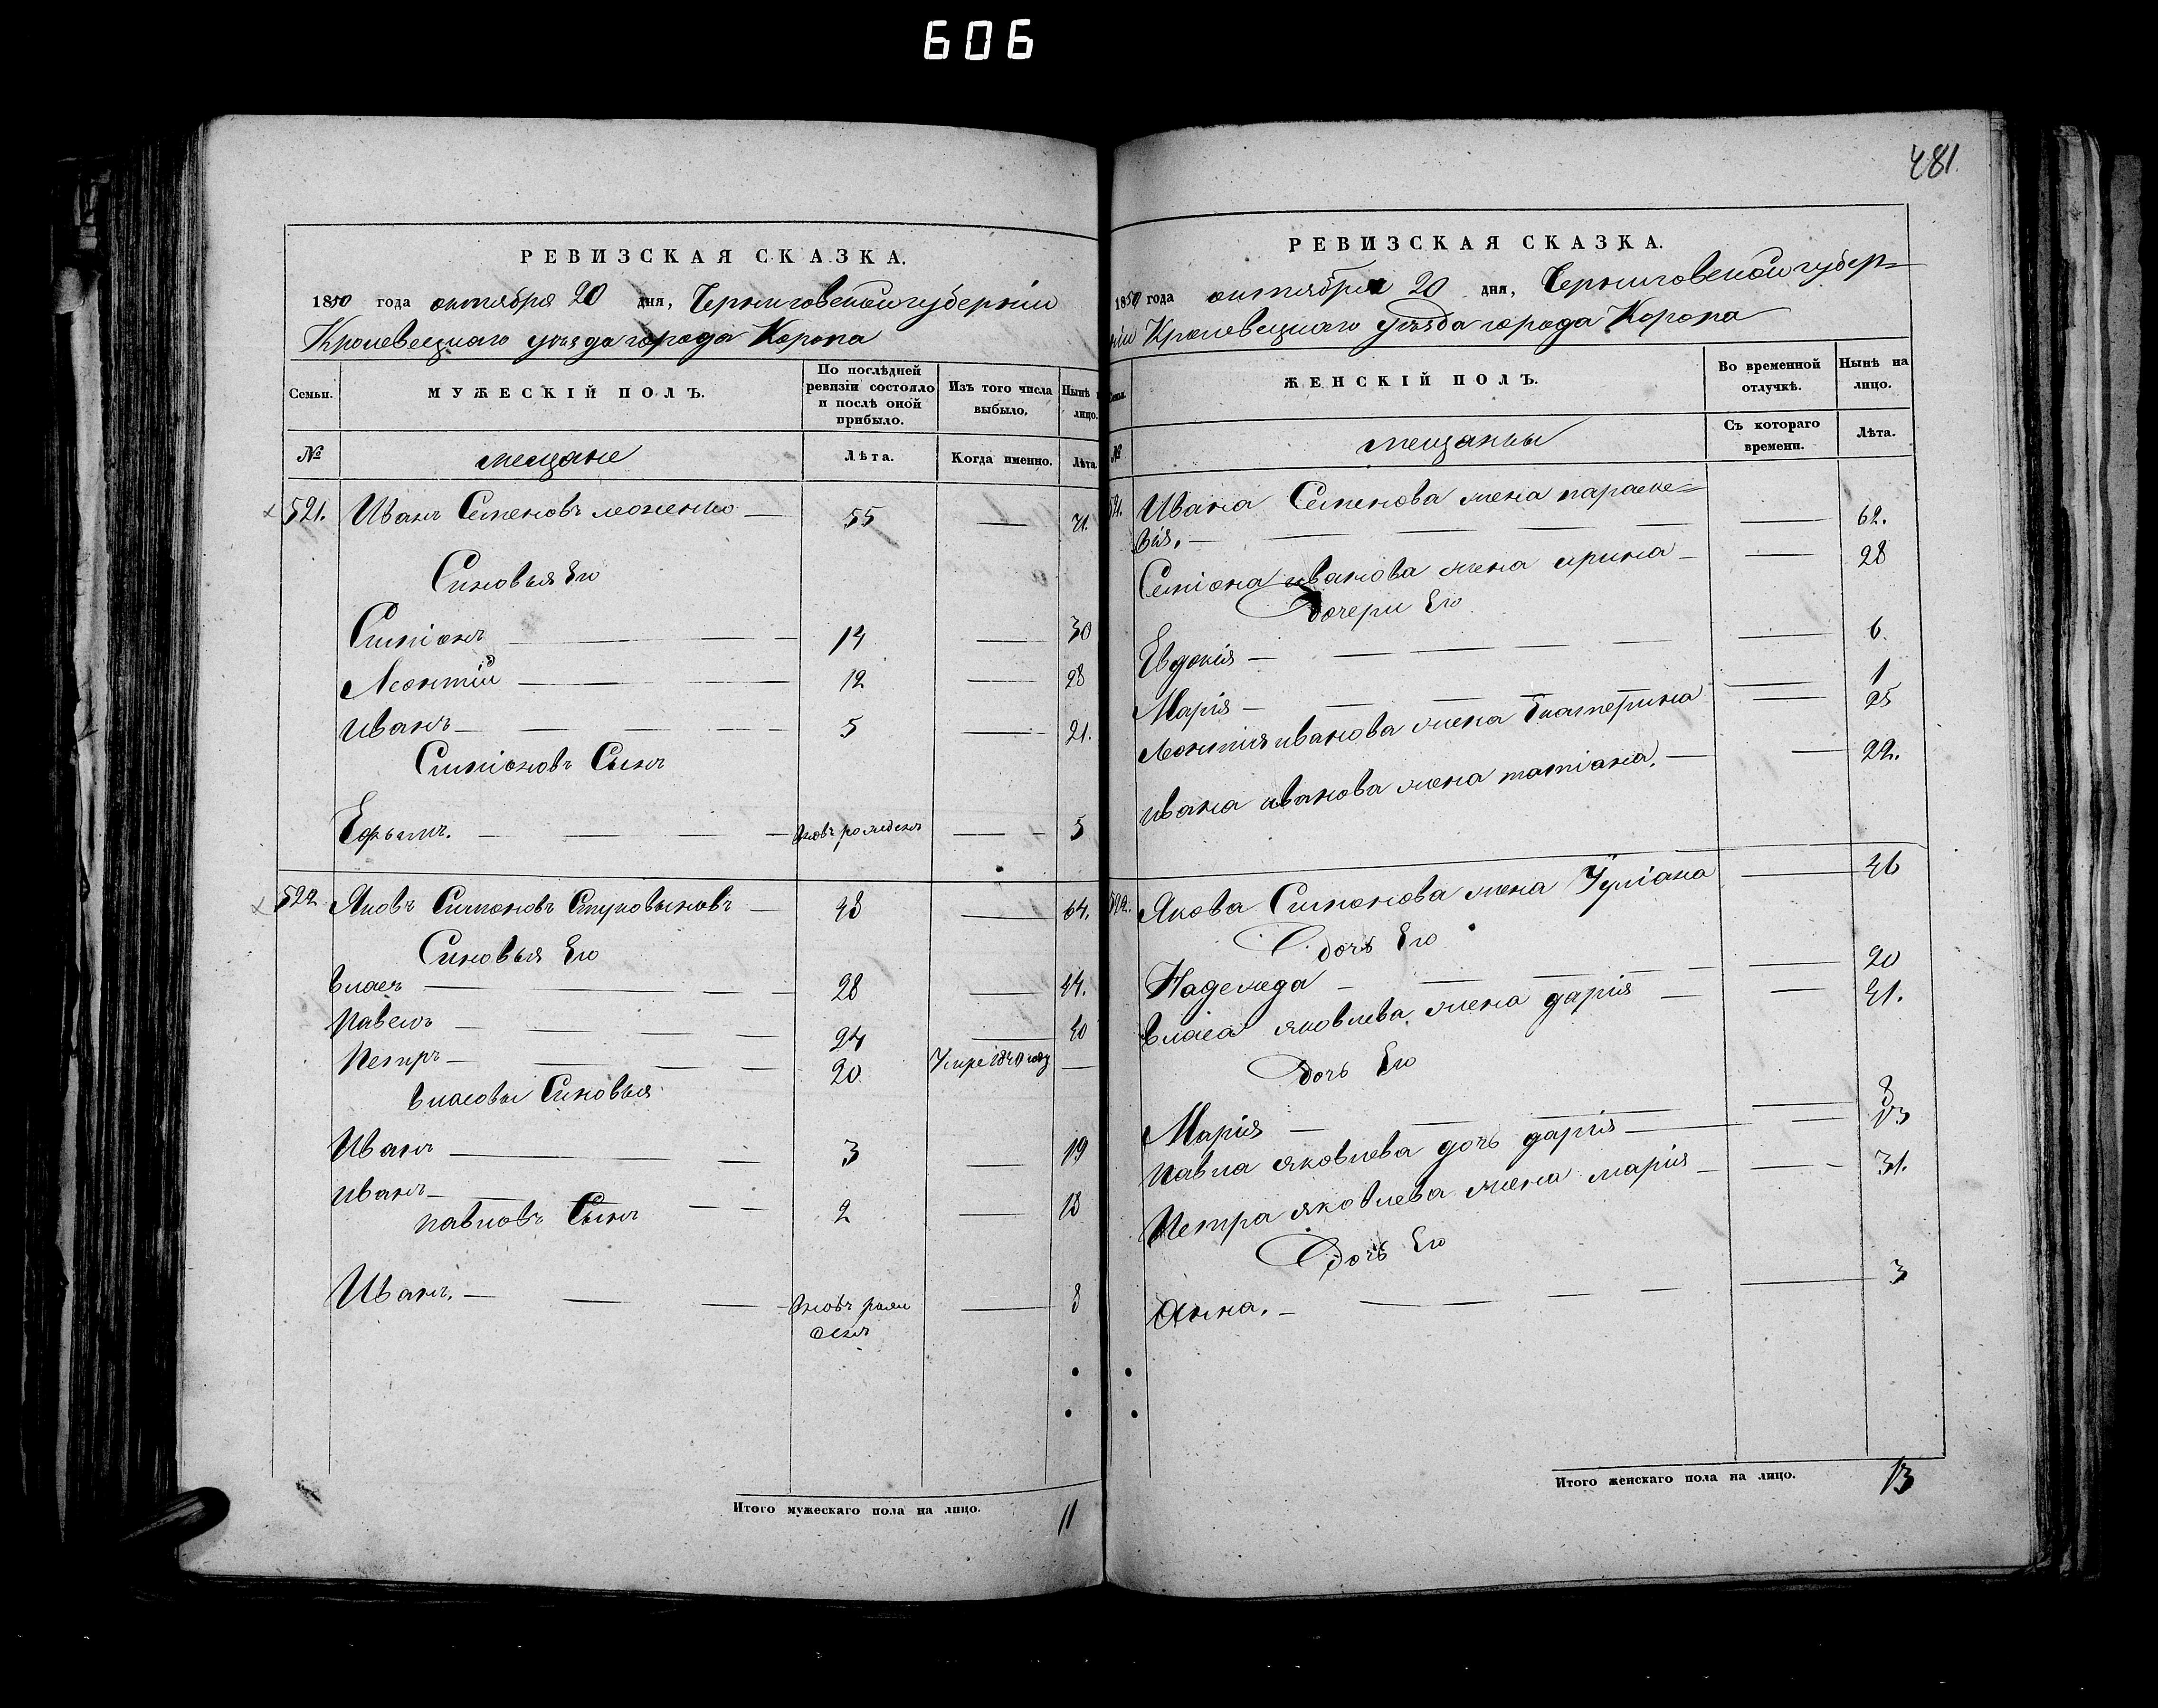 606
РЕВИЗСКАЯ СКАЗКА.
1850 года октября 20 дня, Черниговской губерніи
Кролевецкаго уѣзда города Коропа
Семьи.
МУЖЕСКІЙ ПОЛЪ.
По послѣдней ревизіи состояло и послѣ оной прибыло.
Изъ того числа выбыло.
Нынѣ лицо.
№
мещане
Лѣта.
Когда именно.
Лѣта
521. Иванъ Семеновъ 55 — 71.
Синовья Его
Симіонъ 14 — 30
Леонтій 12 — 28
иванъ 5 — 21.
Симіоновъ Сынъ
вновь рожденъ — 5
522 Яковъ Симоновъ 48 — 64.
Синовья Его
власъ 28 — 44.
павелъ 24 — 40
петръ 20 Умре 1840 году —
власовы Синовья
Иванъ 3 — 19
иванъ 2 — 18
павловъ Сынъ
Иванъ. вновь рожденъ — 8
Итого мужескаго пола на лицо. 11
481.
РЕВИЗСКАЯ СКАЗКА.
1850 года октября 20 дня, Черниговской губер-
ніи Кролевецкаго уѣзда города Коропа
ЖЕНСКІЙ ПОЛЪ.
Во временной отлучкѣ.
Нынѣ на лицо.
№
мещанки
Съ котораго времени.
Лѣта.
521. Ивана Семенова жена параске=
вія. — 62.
Симіона иванова жена ирина — 28
дочери Его
Евдокія — 6.
Марія — 1
леонтія иванова жена Екатерина — 25
ивана иванова жена татіана. — 22.
522. Якова Симонова жена Уліана — 46
дочь Его
Надежда — 20
власа яковлева жена дарія — 41.
дочь Его
Марія — 8
павла яковлева дочь дарія — 13
петра яковлева жена марія — 31.
дочь Его
Анна. — 3
Итого женскаго пола на лицо. 13